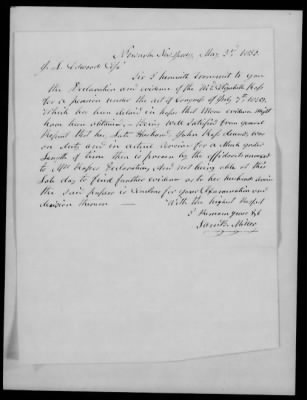 Newark New Jersey May 3d 1850.
J. L. Edwards Esqr
Sir I herewith transmit to you
the Declaration and evidence of the Mrs Elizabeth Ross
for a pension under the Act of Congress of July 7th 1838,
Which has been delayed in hopes that More evidence Might
have been obtained, Being well satisfied from general
Report that her late Husband John Ross deceased, was
on duty and in actual service for a Much greater
length of time than is proven by the affidavits annexed
to Mrs Rosses Declaration, And not being able at this
late day to find further evidence as to her husbands services
the said papers is sent on for your Examination and
decision thereon
With the highest respect
I remain yours &c
Smith Miller